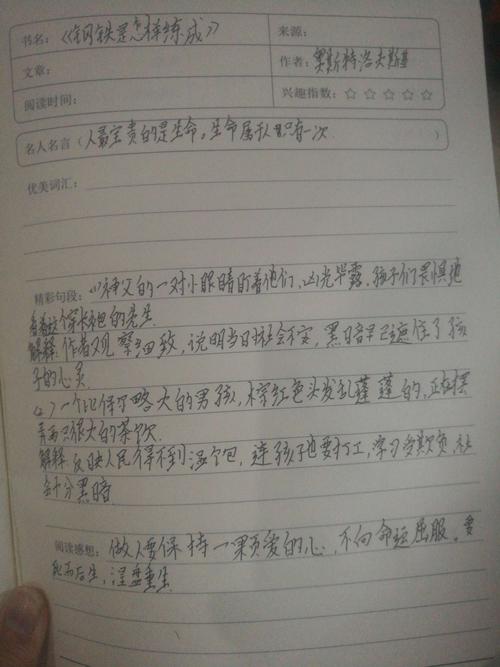 书名：《钢铁是怎样练成》
来源：
文章：
作者：奥斯特洛夫斯基
阅读时间：
兴趣指数：☆ ☆ ☆ ☆ ☆
名人名言（人最宝贵的是生命。生命属于人只有一次 ）
优美词汇：
精彩句段：(1)神父的一对小眼睛盯着他们，凶光毕露，孩子们畏惧地
看着这个穿长袍的先生
解释：作者观察细致，说明当日社会不安，黑暗早已遮住了孩
子的心灵
(2) 一个比保尔略大的男孩，棕红色头发乱蓬蓬的，正在摆
弄两只很大的茶炊
解释 反映人民得不到温饱，连孩子也要打工，学习多欺负 社
会十分黑暗
阅读感想：做人要保持一颗爱的心，不向命运屈服。要
死而后生，涅盘重生